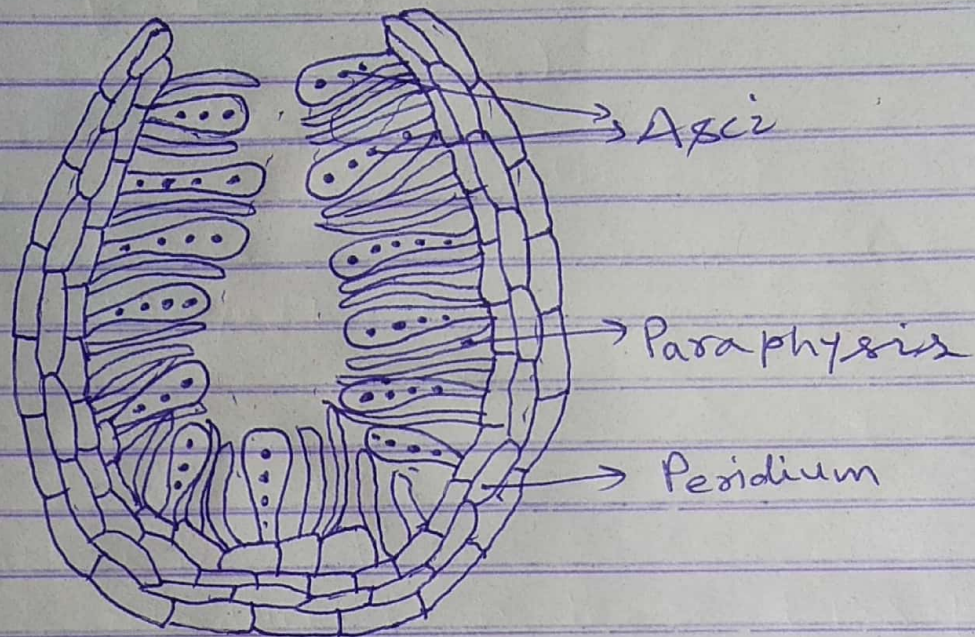 Asci
Paraphysis
Peridium